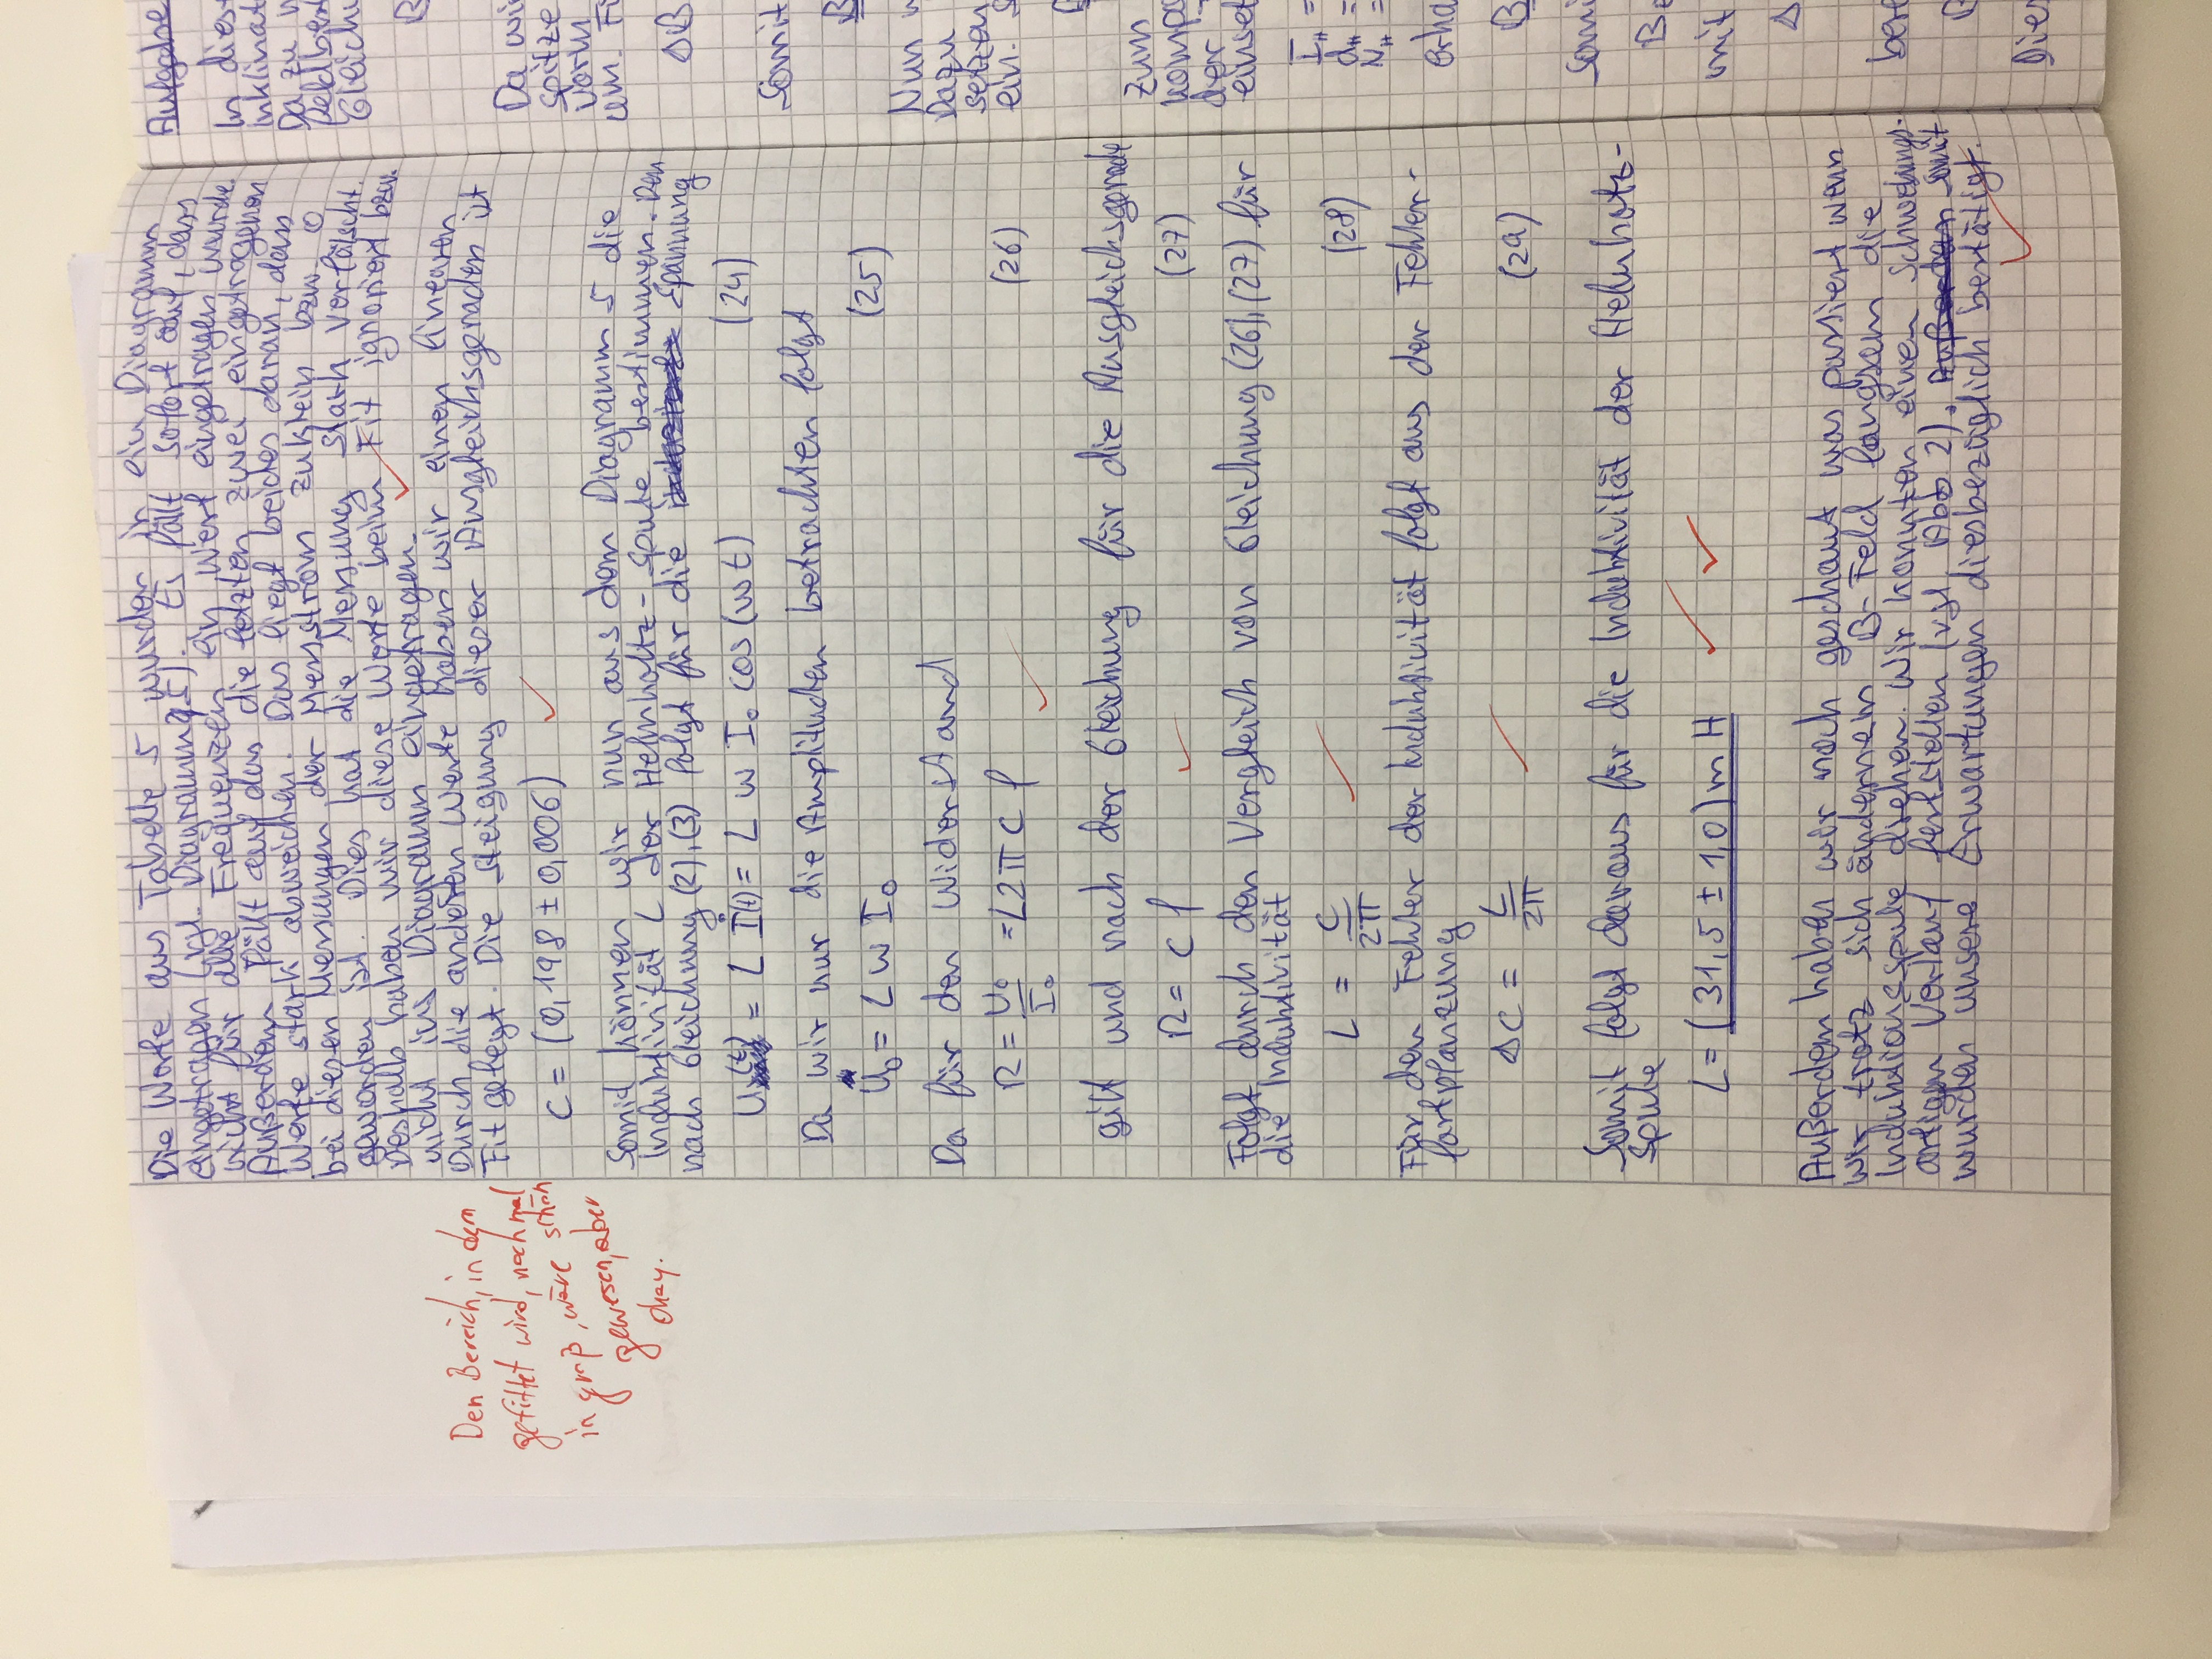 Die Werte aus Tabelle 5 wurden in ein Diagramm
eingetragen (vgl. Diagramm 5). Es fällt sofort auf, dass
nicht für alle Frequenzen ein Wert eingetragen wurde.
Außerdem fällt auf das die letzten zwei eingetragenen
Werte stark abweichen. Das liegt beides daran, dass
bei diesen Messungen der Messstrom zu klein bzw. 0
geworden ist. Dies hat die Messung stark verfälscht.
Deshalb haben wir diese Werte beim Fit ignoriert bzw.
nicht ins Diagramm eingetragen.
Durch die anderen Werte haben wir einen linearen
Fit gelegt. Die Steigung dieser Ausgleichsgeraden ist
Den Bereich, in dem
gefittet wird, nochmal
in groß, wäre schön
gewesen, aber
okay.
C = (0,198 ± 0,006)
Somit können wir nun aus dem Diagramm 5 die
Induktivität L der Helmholtz-Spule bestimmen. Den
nach Gleichung (2), (3) folgt für die Spannung
U(t) = L İ(t) = L w I₀ cos(wt) (24)
Da wir nur die Amplituden betrachten folgt
U₀ = L w I₀ (25)
Da für den Widerstand
R = U₀/I₀ = L2π c f (26)
gilt und nach der Gleichung für die Ausgleichsgerade
R = c f (27)
Folgt durch den Vergleich von Gleichung (26), (27) für
die Induktivität
L = C/2π (28)
Für den Fehler der Induktivität folgt aus der Fehler-
fortplanzung
ΔC = L/2π (29)
Somit folgt daraus für die Induktivität der Helmhotz-
Spule
L = (31,5 ± 1,0) mH
Außerdem haben wir noch geschaut was passiert wenn
wir trotz sich ändernem B-Feld langsam die
Induktionsspule drehen. Wir konnten einen Schwebungs-
artigen Verlauf feststellen (vgl. Abb 2). Somit
wurden unsere Erwartungen diesbezüglich bestätigt.
Aufgabe
In dies
Inklinat
Da zu
Feldbest
Gleich
B
Da wi
Spitze
vorm
um. Fi
ΔB
Somit
B
Nun
Dazu
setzen
ein. S
Zum
kompo
der
einset
I_H =
d_H =
N_H =
erha
B
Somi
mit
Δ
bere
B
Dies